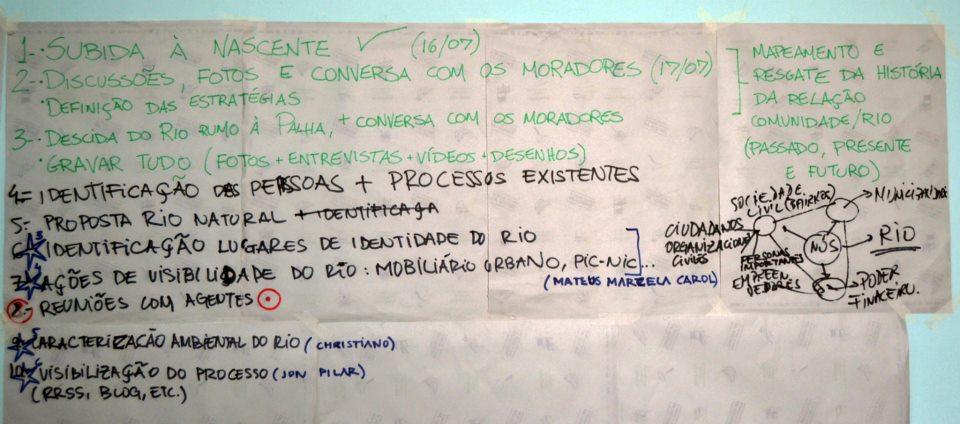 1- SUBIDA À NASCENTE ✓ (16/07)
2- DISCUSSÕES, FOTOS E CONVERSA COM OS MORADORES (17/07)
• DEFINIÇÃO DAS ESTRATÉGIAS
3- DESCIDA DO RIO RUMO À PALHA, + CONVERSA COM OS MORADORES
• GRAVAR TUDO (FOTOS + ENTREVISTAS + VÍDEOS + DESENHOS)
MAPEAMENTO E
RESGATE DA HISTÓRIA
DA RELAÇÃO
COMUNIDADE/RIO
(PASSADO, PRESENTE
E FUTURO)
4- IDENTIFICAÇÃO DAS PESSOAS + PROCESSOS EXISTENTES
5- PROPOSTA RIO NATURAL + IDENTIFICAÇA
6- IDENTIFICAÇÃO LUGARES DE IDENTIDADE DO RIO
7- AÇÕES DE VISIBILIDADE DO RIO: MOBILIÁRIO URBANO, PIC-NIC...
(MATEUS MARCELA CAROL)
8- REUNIÕES COM AGENTES
9- CARACTERIZAÇÃO AMBIENTAL DO RIO (CHRISTIANO)
10- VISIBILIZAÇÃO DO PROCESSO (JON PILAR)
(RRSS, BLOG, ETC.)
SOCIEDADE
CIVIL (BAIRROS)
CIUDADANOS
ORGANIZACIONES
CIVILES
NÓS
RIO
PERSONAS
IMPORTANTES
EMPREEN
DEDORES
PODER
FINACEIRU.